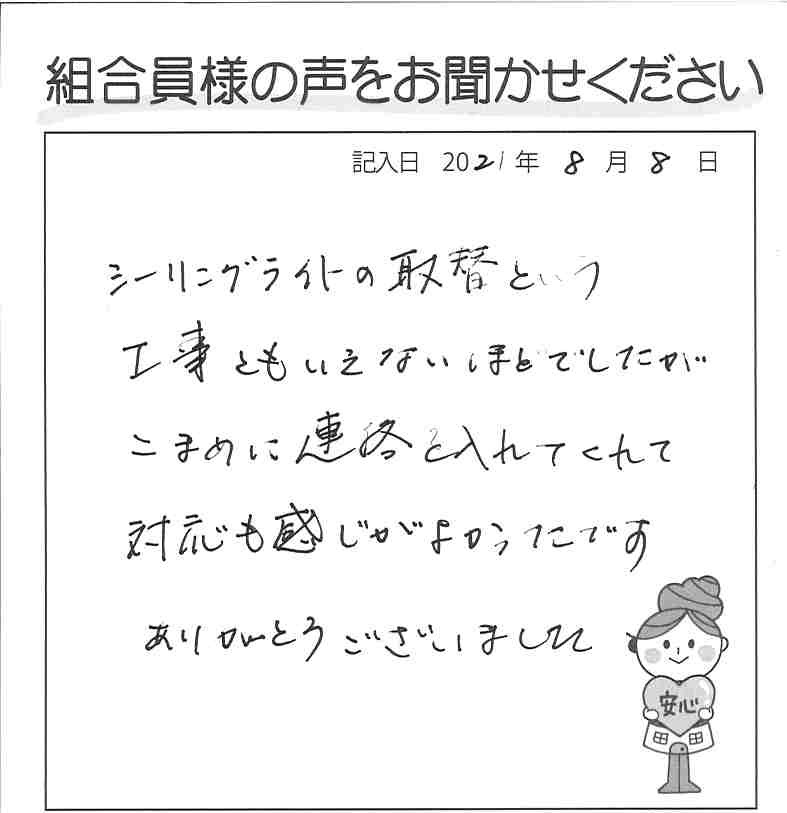 組合員様の声をお聞かせください
記入日 2021年 8月 8日
シーリングライトの取替という
工事ともいえないほどでしたが
こまめに連絡を入れてくれて
対応も感じがよかったです
ありがとうございました
安心